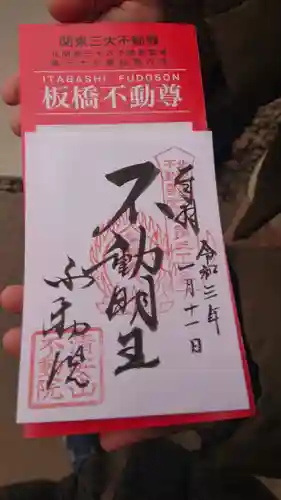 関東三大不動尊
ITABASHI FUDOSON
板橋不動尊
奉拝
令和三年
一月十一日
不動明王
不動院
清安山
不動院